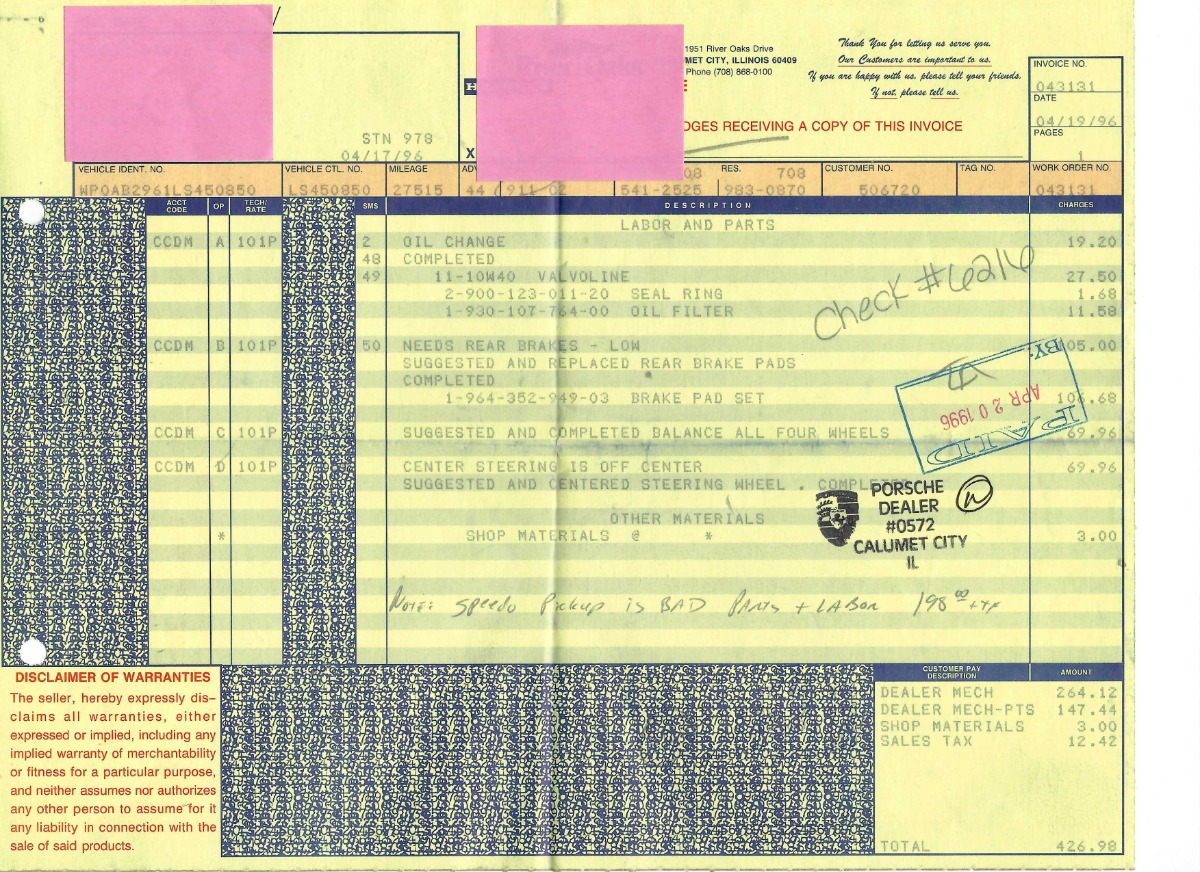 1951 River Oaks Drive
MET CITY, ILLINOIS 60409
Phone (708) 868-0100
Thank You for letting us serve you.
Our Customers are important to us.
If you are happy with us, please tell your friends.
If not, please tell us.
INVOICE NO.
043131
DATE
04/19/96
PAGES
1
DGES RECEIVING A COPY OF THIS INVOICE
STN 978
04/17/96
X
VEHICLE IDENT. NO. VEHICLE CTL. NO. MILEAGE ADV RES. CUSTOMER NO. TAG NO. WORK ORDER NO.
08 708
WP0AB2961LS450850 LS450850 27515 44 / 911 02 541-2525 983-0870 506720 043131
ACCT CODE OP TECH/ RATE SMS DESCRIPTION CHARGES
LABOR AND PARTS
CCDM A 101P 2 OIL CHANGE 19.20
48 COMPLETED
49 11-10W40 VALVOLINE 27.50
2-900-123-011-20 SEAL RING 1.68
1-930-107-764-00 OIL FILTER 11.58
Check #6216
CCDM B 101P 50 NEEDS REAR BRAKES - LOW 05.00
SUGGESTED AND REPLACED REAR BRAKE PADS
COMPLETED
1-964-352-949-03 BRAKE PAD SET 106.68
BY:
APR 20 1996
PAID
CCDM C 101P SUGGESTED AND COMPLETED BALANCE ALL FOUR WHEELS 69.96
CCDM D 101P CENTER STEERING IS OFF CENTER 69.96
SUGGESTED AND CENTERED STEERING WHEEL . COMPLETED
PORSCHE
DEALER
#0572
CALUMET CITY
IL
OTHER MATERIALS
* SHOP MATERIALS @ * 3.00
Note: Speedo Pickup is BAD Parts + LABOR 198.00 +TX
DISCLAIMER OF WARRANTIES
The seller, hereby expressly dis-
claims all warranties, either
expressed or implied, including any
implied warranty of merchantability
or fitness for a particular purpose,
and neither assumes nor authorizes
any other person to assume for it
any liability in connection with the
sale of said products.
CUSTOMER PAY DESCRIPTION AMOUNT
DEALER MECH 264.12
DEALER MECH-PTS 147.44
SHOP MATERIALS 3.00
SALES TAX 12.42
TOTAL 426.98